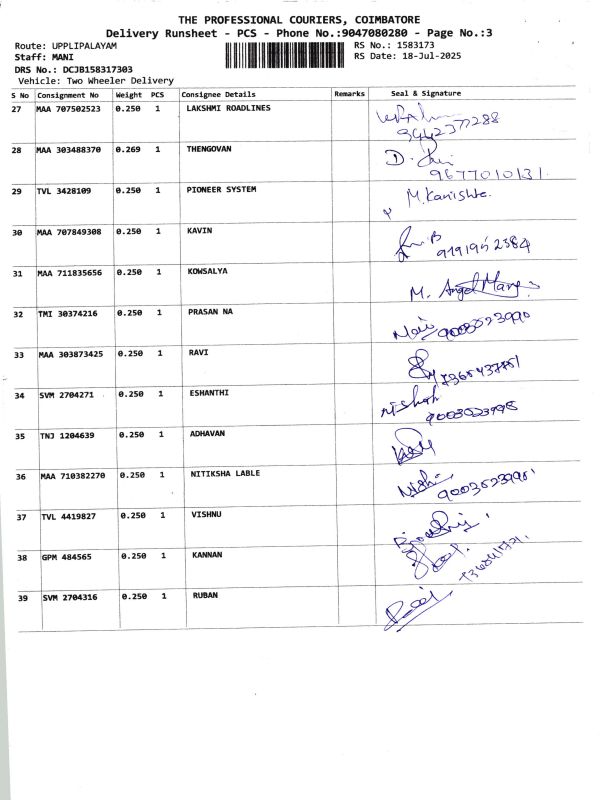 THE PROFESSIONAL COURIERS, COIMBATORE
Delivery Runsheet - PCS - Phone No.:9047080280 - Page No.:3
Route: UPPLIPALAYAM RS No.: 1583173
Staff: MANI RS Date: 18-Jul-2025
DRS No.: DCJB158317303
Vehicle: Two Wheeler Delivery
S No Consignment No Weight PCS Consignee Details Remarks Seal & Signature
27 MAA 707502523 0.250 1 LAKSHMI ROADLINES
28 MAA 303488370 0.269 1 THENGOVAN
9677010131
29 TVL 3428109 0.250 1 PIONEER SYSTEM M.Kanishka
30 MAA 707849308 0.250 1 KAVIN
9191952384
31 MAA 711835656 0.250 1 KOWSALYA
M. Angel Mary
32 TMI 30374216 0.250 1 PRASAN NA
9003523990
33 MAA 303873425 0.250 1 RAVI
34 SVM 2704271 0.250 1 ESHANTHI
35 TNJ 1204639 0.250 1 ADHAVAN
36 MAA 710382270 0.250 1 NITIKSHA LABLE
37 TVL 4419827 0.250 1 VISHNU
38 GPM 484565 0.250 1 KANNAN
39 SVM 2704316 0.250 1 RUBAN